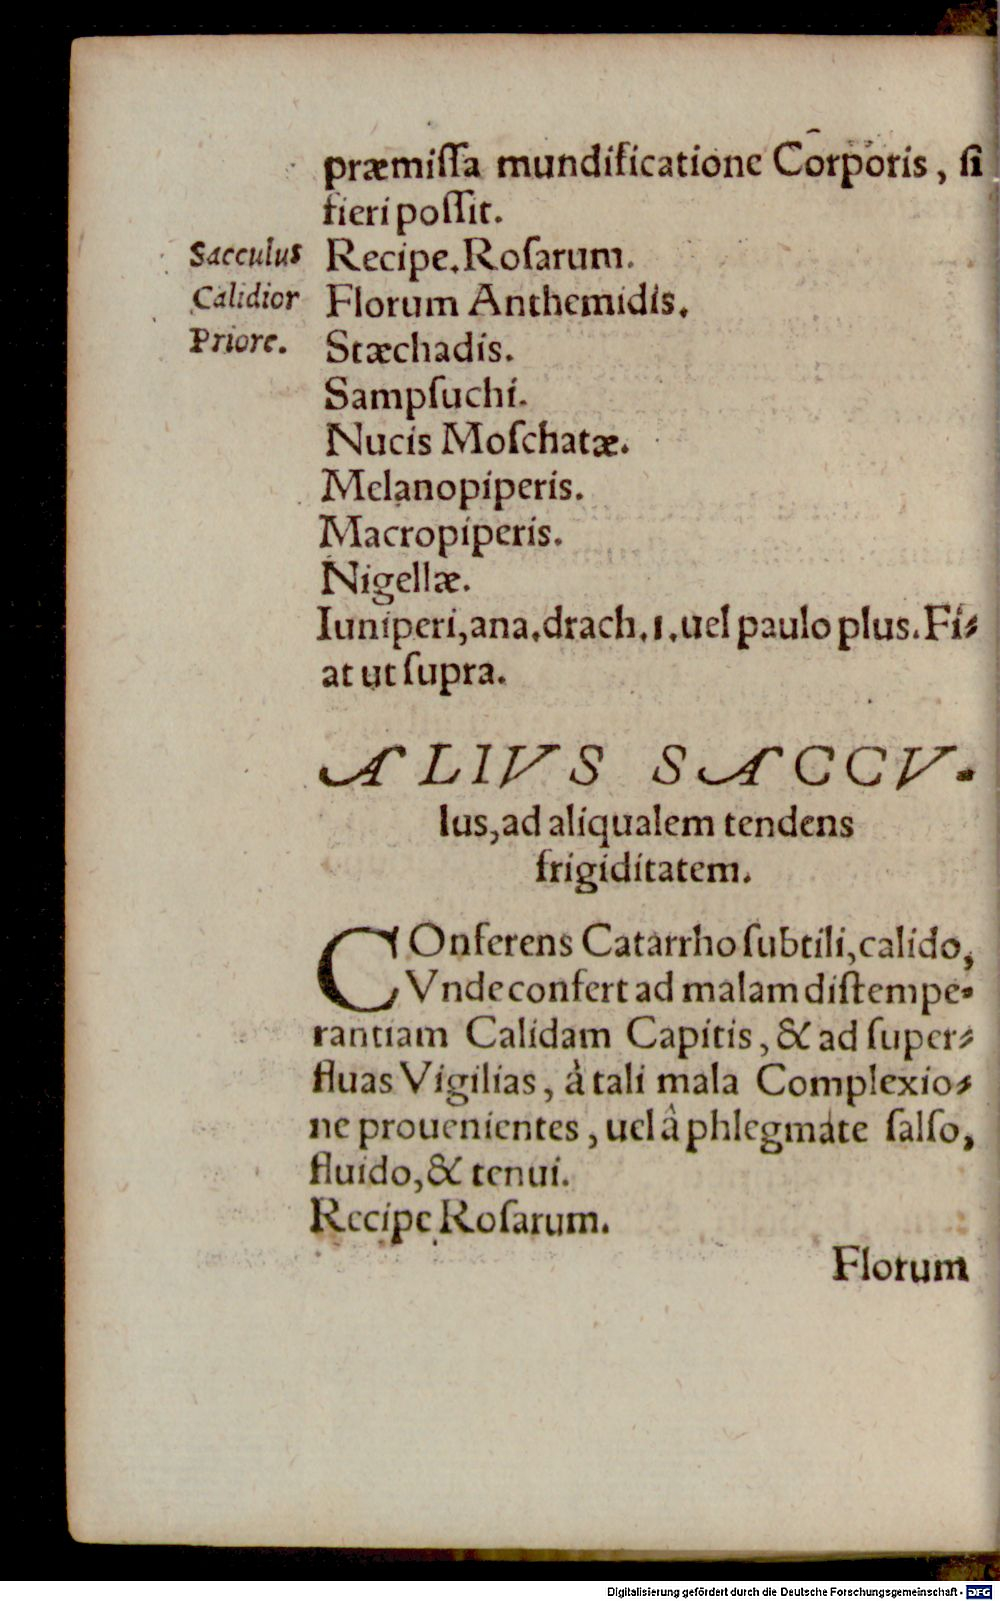 præmiſſa mundificatione Corporis, ſi
fieri poſſit.
Sacculus
Calidior
Priore.
Recipe. Roſarum.
Florum Anthemidis.
Stæchadis.
Sampſuchi.
Nucis Moſchatæ.
Melanopiperis.
Macropiperis.
Nigellæ.
Iuniperi, ana. drach. 1. uel paulo plus. Fi⸗
at ut ſupra.
ALIVS SACCV-
lus, ad aliqualem tendens
frigiditatem.
COnferens Catarrho ſubtili, calido,
Vnde confert ad malam diſtempe-
rantiam Calidam Capitis, & ad ſuper⸗
fluas Vigilias, à tali mala Complexio⸗
ne prouenientes, uel â phlegmate ſalſo,
fluido, & tenui.
Recipe Roſarum.
Florum
Digitalisierung gefördert durch die Deutsche Forschungsgemeinschaft - DFG